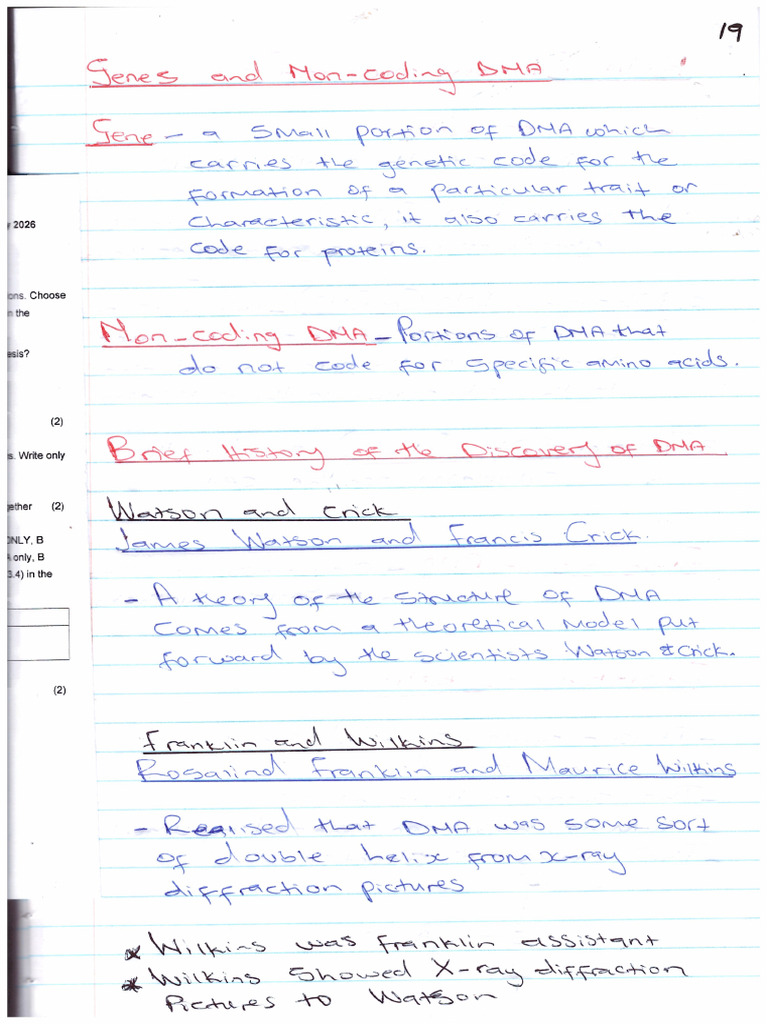 19
Genes and Non-coding DNA
Gene - a small portion of DNA which
carries the genetic code for the
formation of a particular trait or
characteristic, it also carries the
code for proteins.
2026
ons. Choose
n the
Non-coding DNA - Portions of DNA that
esis?
do not code for specific amino acids.
(2)
Brief History of the Discovery of DNA
s. Write only
Watson and Crick
gether (2)
James Watson and Francis Crick.
ONLY, B
only, B
3.4) in the
- A theory of the structure of DNA
comes from a theoretical model put
forward by the scientists Watson & Crick.
(2)
Franklin and Wilkins
Rosalind Franklin and Maurice Wilkins
- Realised that DNA was some sort
of double helix from x-ray
diffraction pictures
* Wilkins was Franklin assistant
* Wilkins showed X-ray diffraction
pictures to Watson